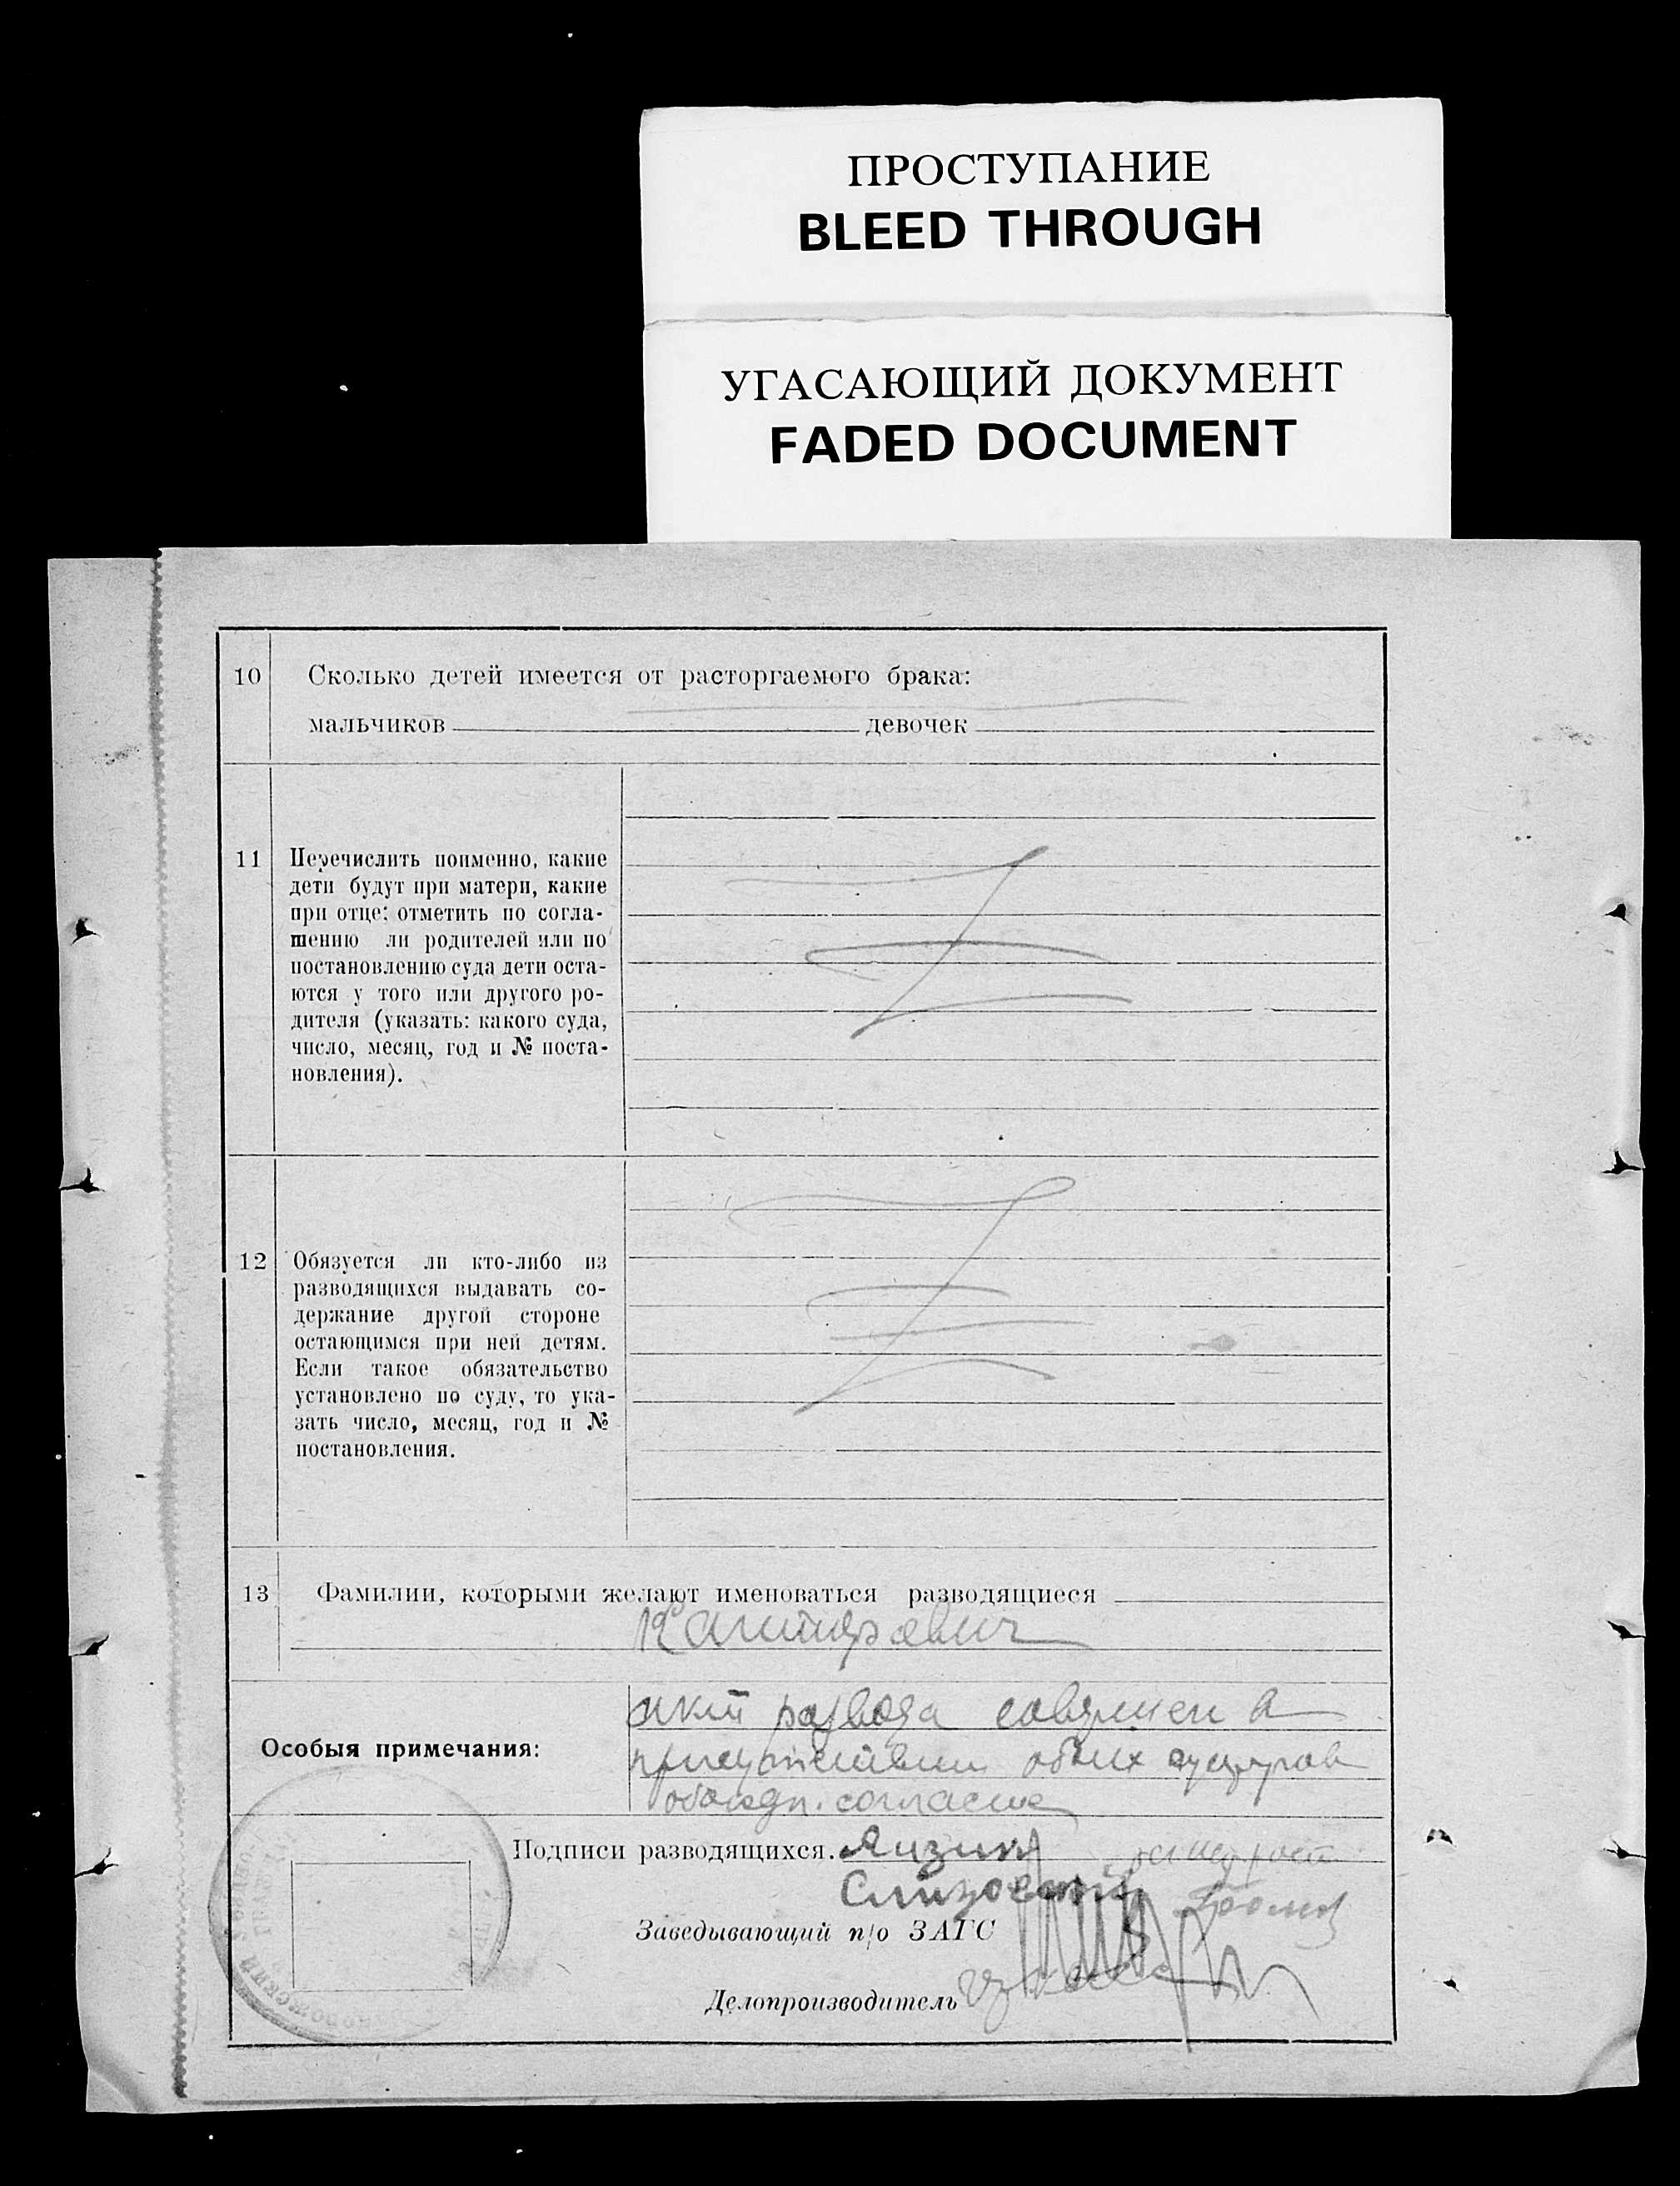 ПРОСТУПАНИЕ
BLEED THROUGH
УГАСАЮЩИЙ ДОКУМЕНТ
FADED DOCUMENT
10 Сколько детей имеется от расторгаемого брака:
мальчиков девочек
11 Перечислить поименно, какие
дети будут при матери, какие
при отце: отметить по согла-
шению ли родителей или по
постановлению суда дети оста-
ются у того или другого ро-
дителя (указать: какого суда,
число, месяц, год и № поста-
новления).
12 Обязуется ли кто-либо из
разводящихся выдавать со-
держание другой стороне
остающимся при ней детям.
Если такое обязательство
установлено по суду, то ука-
зать число, месяц, год и №
постановления.
13 Фамилии, которыми желают именоваться разводящиеся
акт развода совершен в
Особыя примечания:
присутствии обоих супругов
согласие
Подписи разводящихся.
Заведывающий п/о ЗАГС
Делопроизводитель